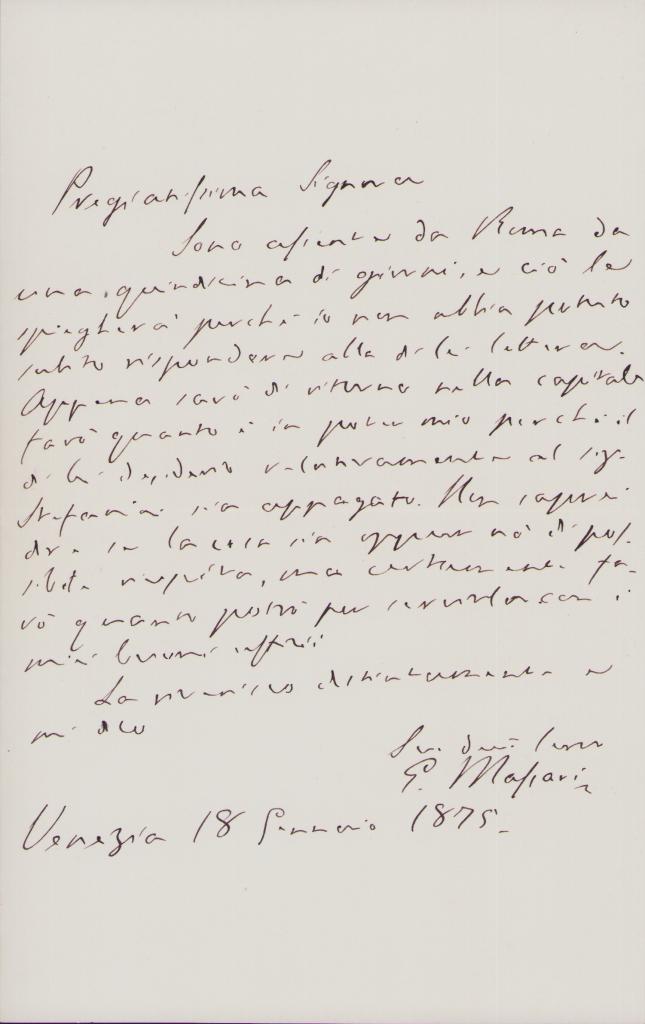 Pregiatissima Signora
Sono assente da Roma da
una quindicina di giorni, e ciò le
spiegherà perché io non abbia potuto
subito rispondere alla di lei lettera.
Appena sarò di ritorno nella capitale
farò quanto è in poter mio perché il
di lei desiderio relativamente al sig.
Stefanini sia appagato. Non saprei
dire se la cosa sia oppur nò di pos-
sibile riuscita, ma certamente fa-
rò quanto potrò per servirla con i
miei buoni uffizii
La riverisco distintamente e
mi dico
Suo devmo servo
G. Massari
Venezia 18 Gennaio 1875.